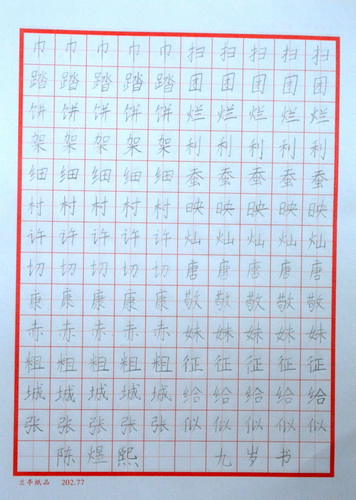 巾巾巾巾巾扫扫扫扫扫
踏踏踏踏踏团团团团团
饼饼饼饼饼烂烂烂烂烂
架架架架架利利利利利
细细细细细蚕蚕蚕蚕蚕
村村村村村映映映映映
许许许许许灿灿灿灿灿
切切切切切唐唐唐唐唐
康康康康康敬敬敬敬敬
赤赤赤赤赤妹妹妹妹妹
粗粗粗粗粗征征征征征
城城城城城给给给给给
张张张张张似似似似似
陈煜熙 九岁书
兰亭纸品 202.77